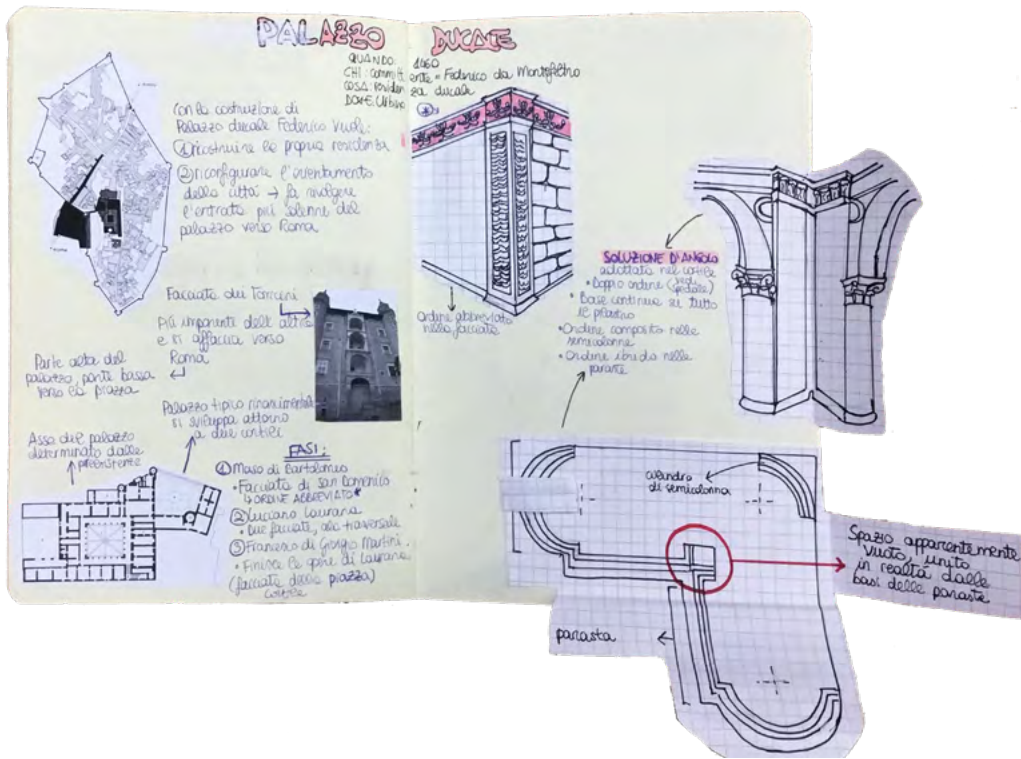 PALAZZO DUCALE
QUANDO: 1460
CHI: committente = Federico da Montefeltro
COSA: residenza ducale
DOVE: Urbino
Con la costruzione di
Palazzo ducale Federico vuole:
① ricostruire la propria residenza
② riconfigurare l'orientamento
della città → fa rivolgere
l'entrata più solenne del
palazzo verso Roma
Facciata dei Torricini
Più imponente dell'altra
e si affaccia verso
Roma
Parte alta del
palazzo, parte bassa
verso la piazza
Palazzo tipico rinascimentale
si sviluppa attorno
a due cortili
Asse del palazzo
determinato dalle
preesistente
FASI:
① Maso di Bartolomeo
• Facciata di san Domenico
↳ ORDINE ABBREVIATO*
② Luciano Laurana
• Due facciate, ala trasversale
③ Francesco di Giorgio Martini
• Finisce le opere di Laurana
(facciata della piazza)
cortile
*
Ordine abbreviato
nella facciata
SOLUZIONE D'ANGOLO
adottata nel cortile
• Doppio ordine (vedi
spedale)
• Base continua su tutto
il pilastro
• Ordine composito nelle
semicolonne
• Ordine ibrido nelle
paraste
cilindro
di semicolonna
Spazio apparentemente
vuoto, unito
in realtà dalle
basi delle paraste
parasta